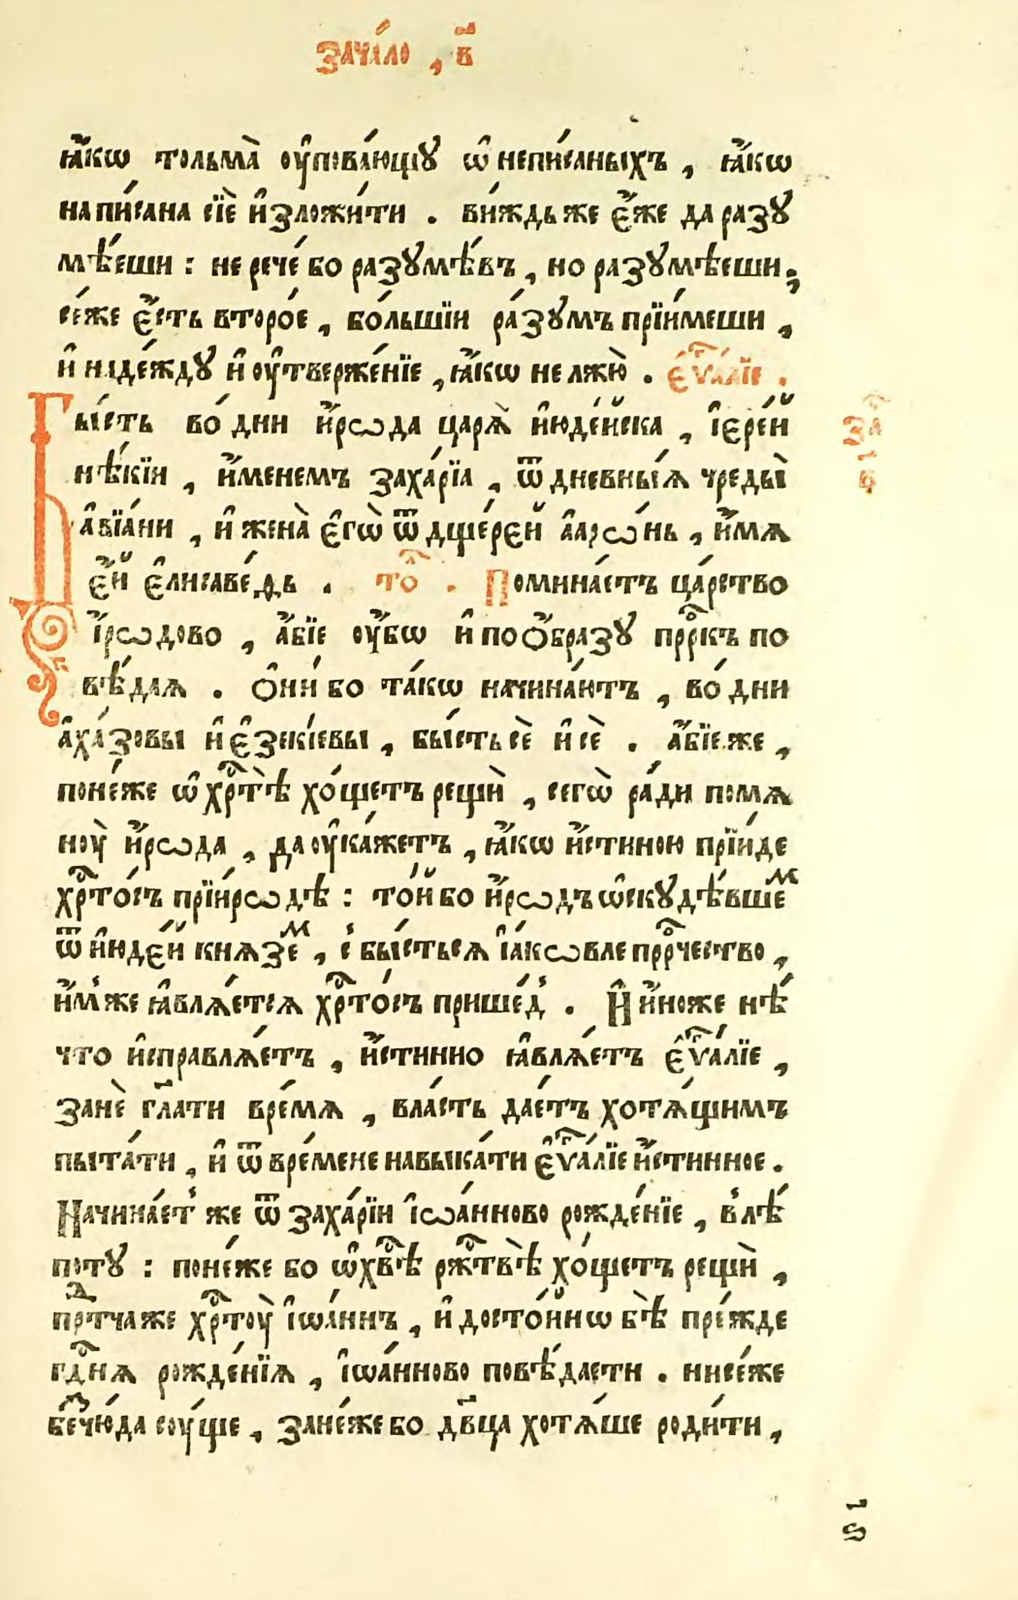 зача́ло , в҃
ꙗ҆́кѡ тольма̀ ᲂу҆пова́ющꙋ ѡ҆ непи́саныхъ , ꙗ҆́кѡ
напи́сана сїѐ и҆зложи́ти . ви́ждь же є҆́же да разꙋ
мѣ́еши : не рече́ бо разꙋмѣ́въ , но разꙋмѣ́еши ,
се́же є҆́сть второ́е , бо́льшїи ра́зꙋмъ прїи́меши ,
и҆ наде́ждꙋ и҆ ᲂу҆тверже́нїе , ꙗ҆́кѡ не лжю̀ . є҆ѵⷢ҇а́лїе .
Бы́сть во́ дни и҆́рѡда царѧ̀ и҆юде́йска , і҆ере́й
нѣ́кїи , и҆́менемъ заха́рїа , ѿ дневны́ѧ чреды̀
а҆вїа́ни , и҆ жена̀ є҆гѡ̀ ѿ дще́рей а҆арѡ́нь , и҆́мѧ
є҆́й є҆лисаве́ѳь . тоⷧ҇ . Помина́етъ ца́рство
и҆́рѡдово , а҆́бїе ᲂу҆́бѡ и҆ по ѻ҆́бразꙋ прⷪ҇ркъ по
вѣ́даѧ . ѻ҆ни́ бо та́кѡ начина́ютъ , во́ дни
а҆ха́зовы и҆ є҆зекі́евы , бы́сть сѐ и҆ сѐ . а҆́бїе же ,
поне́же ѡ҆ хрⷭ҇тѣ̀ хо́щетъ рещѝ , сегѡ̀ ра́ди помѧ
нꙋ̀ и҆́рѡда , да ᲂу҆ка́жетъ , ꙗ҆́кѡ и҆́стиною прїи́де
хрⷭ҇то́съ при и҆́рѡдѣ : то́й бо и҆́рѡдъ ѡ҆скꙋдѣ́вшеⷨ
ѿ и҆юде́й кнѧ́зеⷨ , и҆ бы́стьсѧ і҆а́кѡвле прⷪ҇рчество ,
и҆́мже ꙗ҆влѧ́етсѧ хрⷭ҇то́съ прише́д . И҆ и҆́ноже нѣ́
что и҆справлѧ́етъ , и҆́стинно ꙗ҆влѧ́етъ є҆ѵⷢ҇а́лїе ,
занѐ гл҃ати вре́мѧ , вла́сть дае́тъ хотѧ́щимъ
пыта́ти , и҆ ѿ вре́мене навыка́ти є҆ѵⷢ҇а́лїе и҆́стинное .
Начина́ет же ѿ заха́рїи і҆ѡа́нново рожде́нїе , в лѣ́
потꙋ : поне́же бо ѡ҆ хвⷭ҇ѣ̀ ржⷭ҇твѣ̀ хо́щетъ рещѝ ,
прⷣтча же хрⷭ҇тоу̀ і҆ѡа́ннъ , и҆ досто́йнѡ бѣ̀ пре́жде
гдⷭ҇нѧ рожде́нїѧ , і҆ѡа́нново повѣ́дасти . ни се́же
беⷥчю́да сꙋ́ще , зане́же бо дв҃ца хотѧ́ше роди́ти ,
заⷱ҇
в҃
ѕ҃